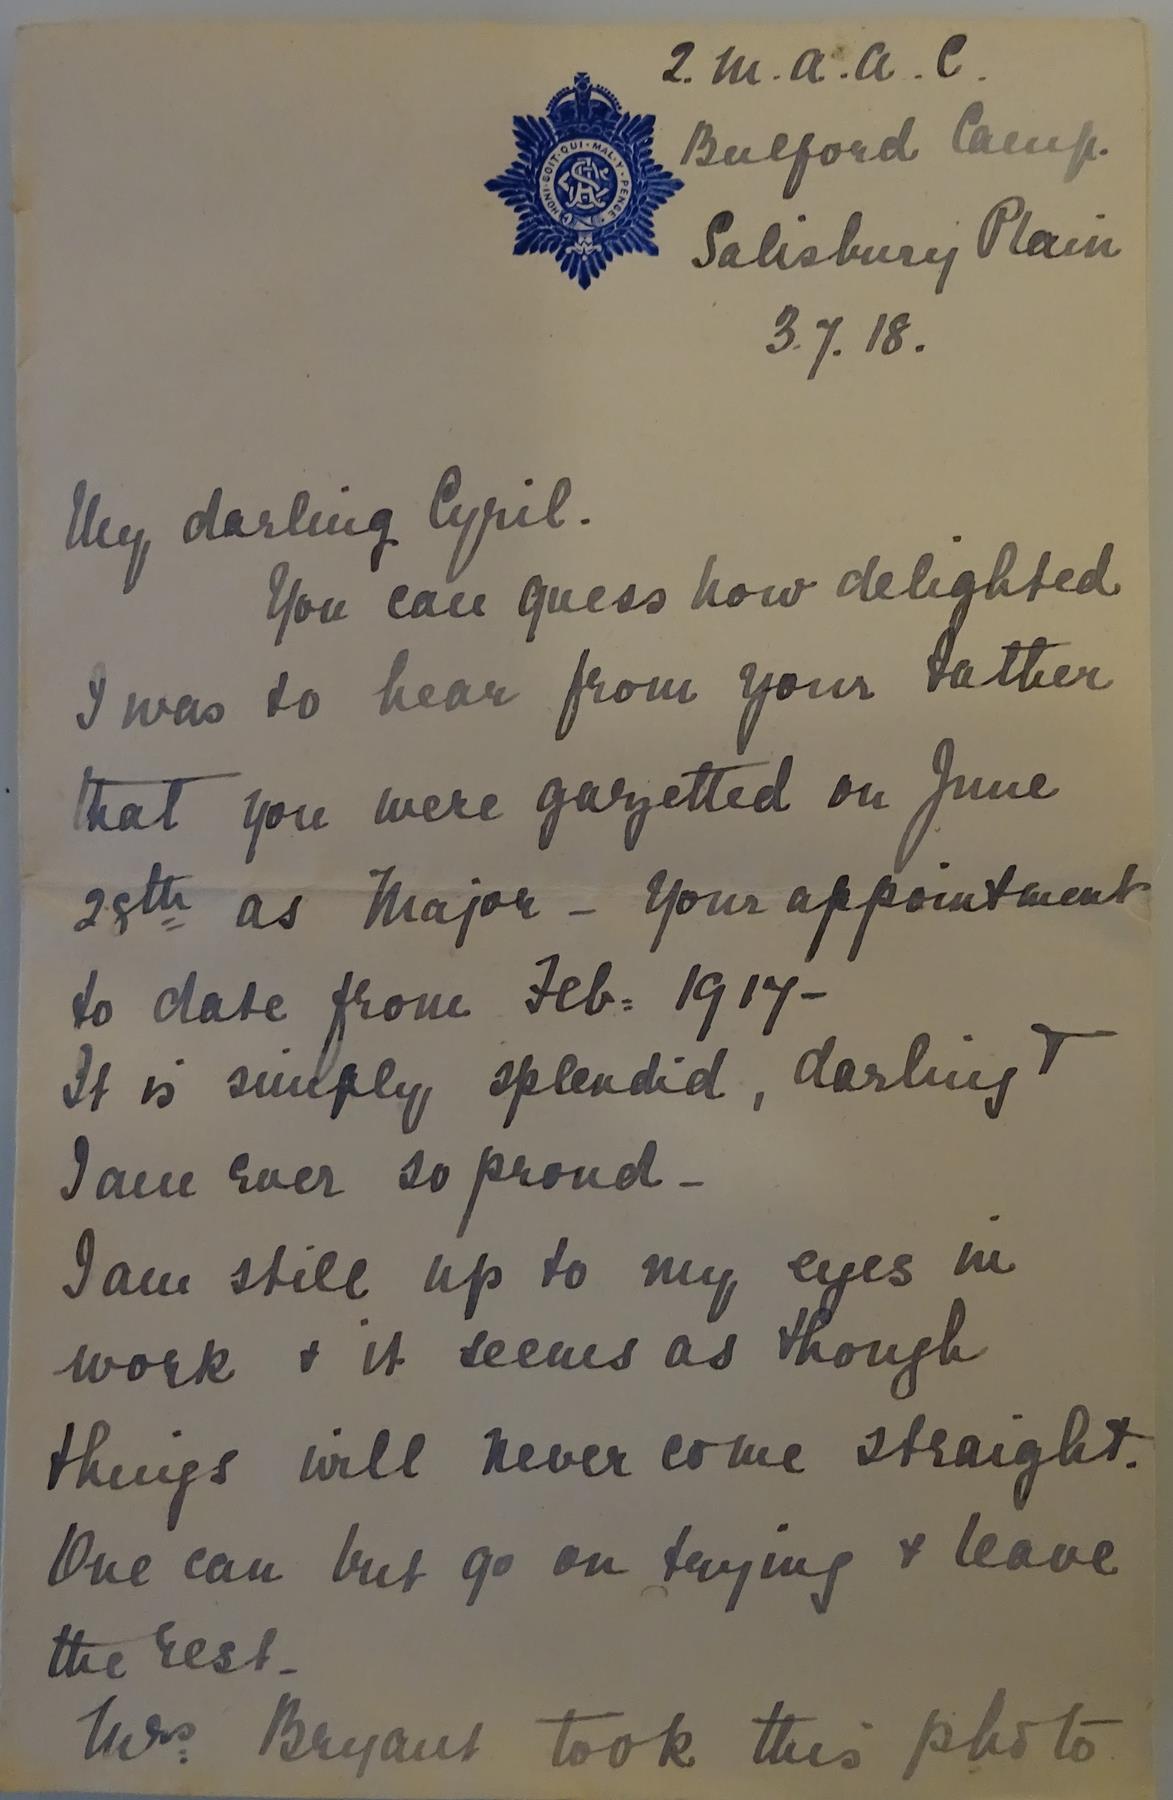 2. M.A.A.C.
HONI·SOIT·QUI·MAL·Y·PENSE
ASC
Bulford Camp.
Salisbury Plain
3.7.18.
My darling Cyril.
You can guess how delighted
I was to hear from your father
that you were gazetted on June
28th as Major - Your appointment
to date from Feb: 1917-
It is simply splendid, darling &
I am ever so proud -
I am still up to my eyes in
work & it seems as though
things will never come straight.
One can but go on trying & leave
the rest -
Mrs: Bryant took this photo